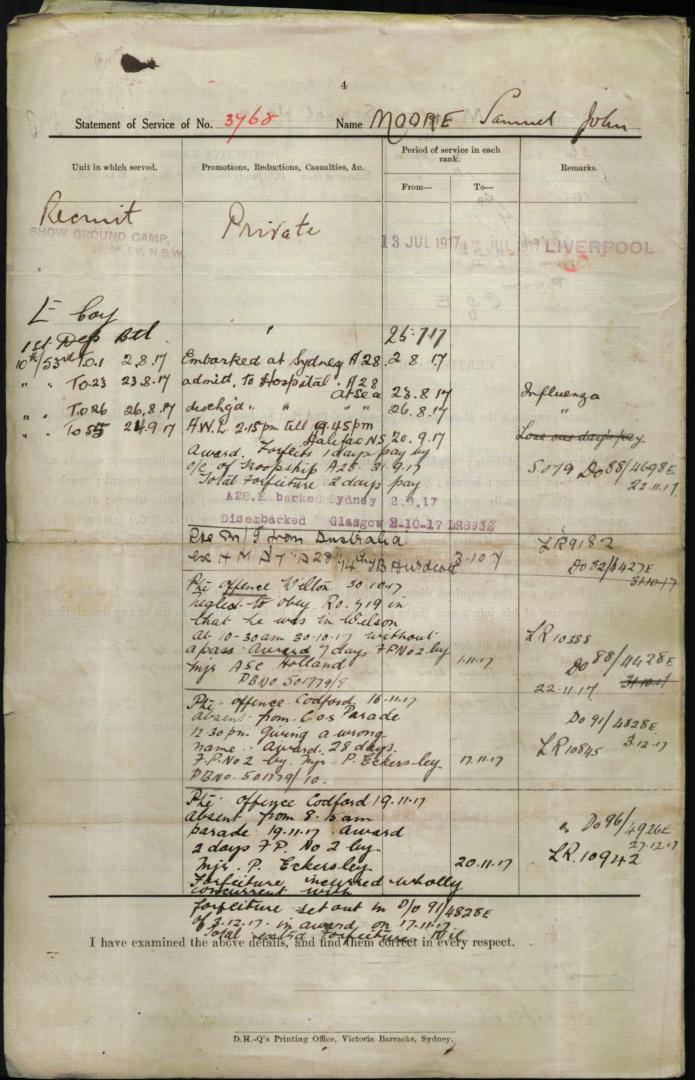 4
Statement of Service of No. 3768 Name MOORE Samuel John
Unit in which served. Promotions, Reductions, Casualties, &c. Period of service in each rank. Remarks.
From— To—
Recruit Private
SHOW GROUND CAMP, 13 JUL 1917 JUL 191 LIVERPOOL
SYDNEY, N.S.W.
L Coy
1st Dep Btl " 25-7-17
10th/53rd To.1 2.8.17 Embarked at Sydney A28. 2 8 17
" " To.23 23.8.17 admitt. To Hospital. A28
at sea 23.8.17 Influenza
" " To26 26.8.17 dischgd " " " " 26.8.17 "
" " To55 24.9.17 A.W.L. 2.15pm till 19.45pm
Halifax NS. 20.9.17 Lose one day's pay
Award. Forfeits 1 days pay by
o/c of Troopship A28. 21.9.17 5079 Do 88/4698E
Total Forfeiture 2 days pay 22.11.17
A28. E barked Sydney 2. .17
Disembarked Glasgow 2-10-17 DR8932
from Australia LR9182
ex H M A T "A28" 14th TB Hurdcott 3.10.7 Do 82/ 427E
31.10.17
offence Wilton 30.10.17
neglect to obey RO. 419 in
that he was in Wilson
at 10-30am 30.10.17 without LR 10388
a pass. Award 7 days F.P No 2 by Do 88/4428E
Mjr ASC Holland 1.11.17 31.10.17
PBNo 501779/8 22.11.17
offence. Codford 16.11.17
absent from C.o.s Parade Do 91/4828E
12.30pm. giving a wrong 3.12.17
name. Award. 28 days. LR10845
F.P. No 2 by Mjr. P. Eckersley. 17.11.17
PBNo. 501779/10.
offence Codford 19.11.17
absent from 8. 15 am Do 96/4926E
parade 19.11.17 Award 27.12.17
2 days F.P. No 2 by LR. 10942
Mjr. P. Eckersley 20.11.17
Forfeiture incurred wholly
concurrent with
forfeiture set out in D/O 91/4828E
of 3.12.17 in award on 17.11.17
Total forfeiture Nil
I have examined the above details, and find them correct in every respect.
D.H.-Q's Printing Office, Victoria Barracks, Sydney.